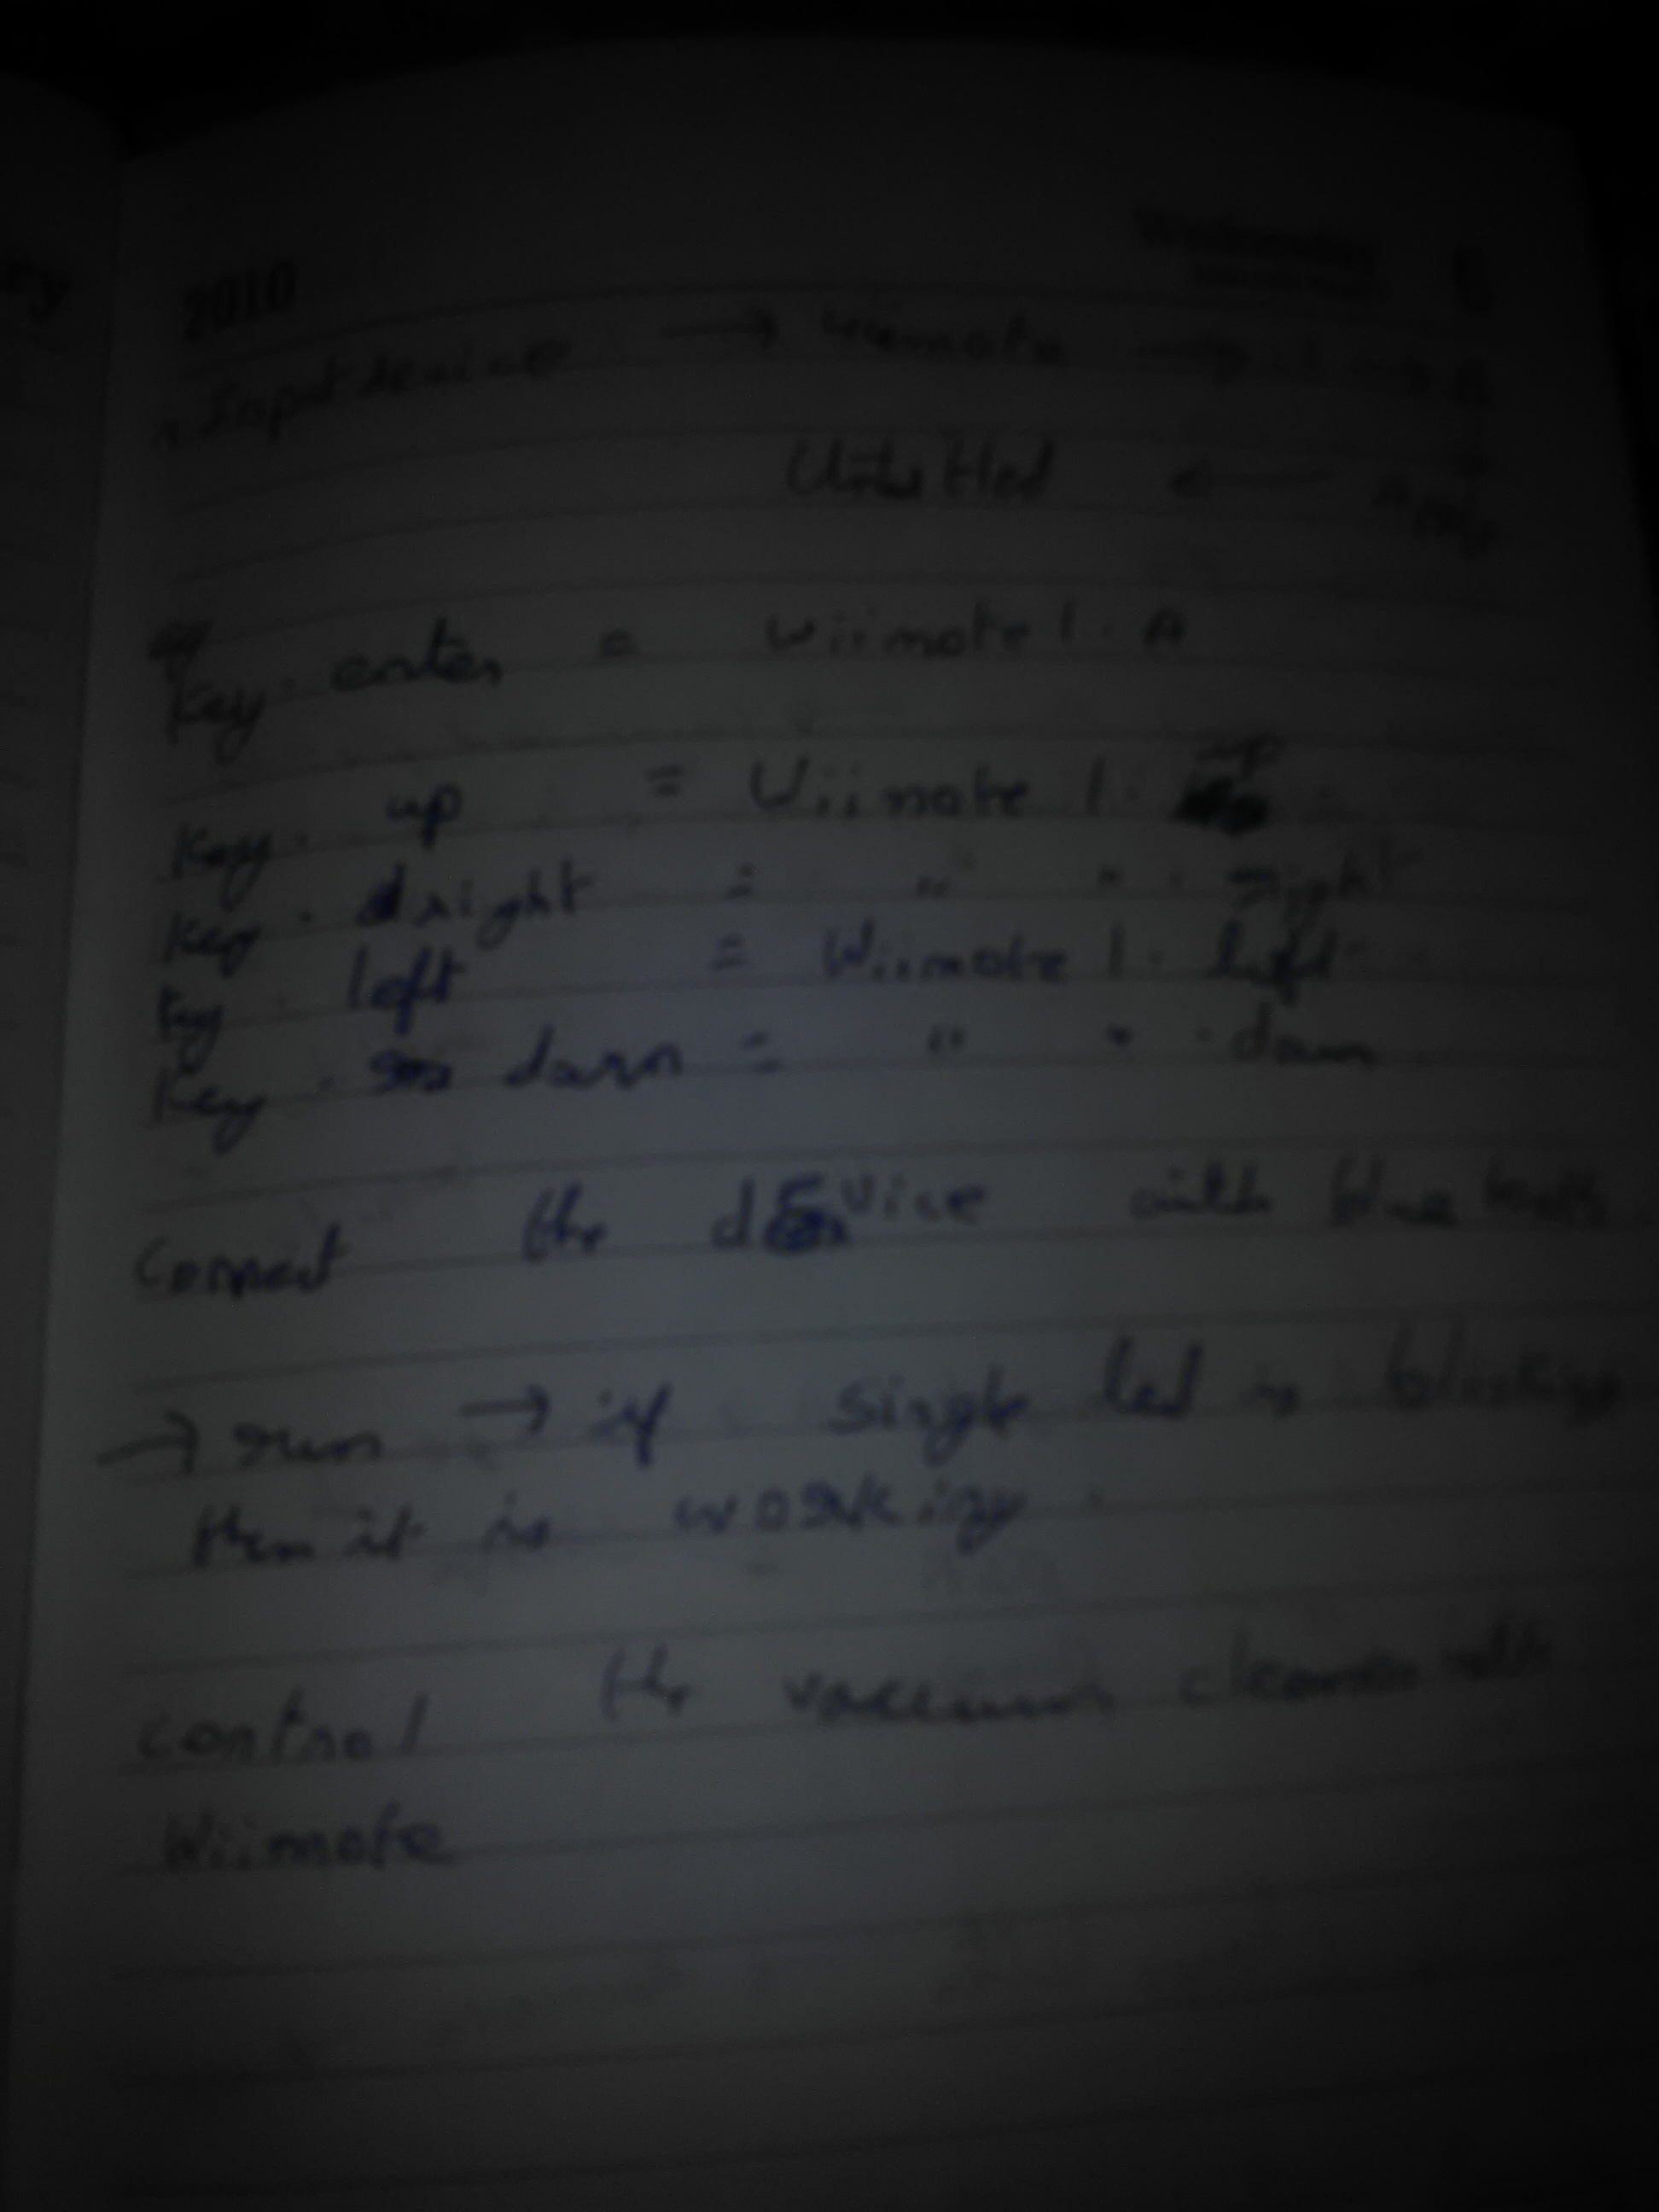 2010 Wednesday 6
Input device → wiimote → 1 →
Untitled ←
Key. enter = Wiimote 1. A
Key. up = Wiimote 1. up
Key. right = " " . right
Key. left = Wiimote 1. left
Key. down = " " . down
Connect the device with blue tooth
→ run → if single led is blinking
then it is working.
Control the vaccum cleaner with
Wiimote